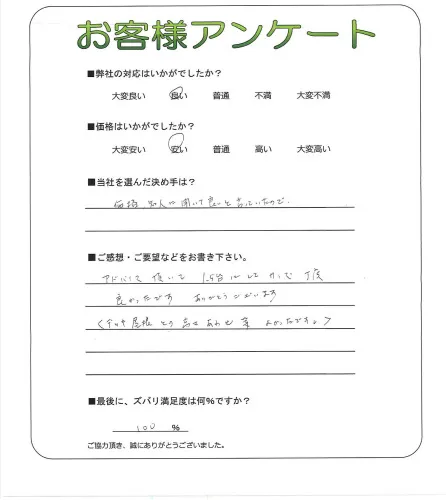 お客様アンケート
■弊社の対応はいかがでしたか？
大変良い 良い 普通 不満 大変不満
■価格はいかがでしたか？
大変安い 安い 普通 高い 大変高い
■当社を選んだ決め手は？
価格 知人に聞いて良いと言っていたので。
■ご感想・ご要望などをお書き下さい。
アドバイス頂いて 1.5台にして
良かったです ありがとうございます
屋根 高さ よかったですよ>
■最後に、ズバリ満足度は何%ですか？
100 %
ご協力頂き、誠にありがとうございました。